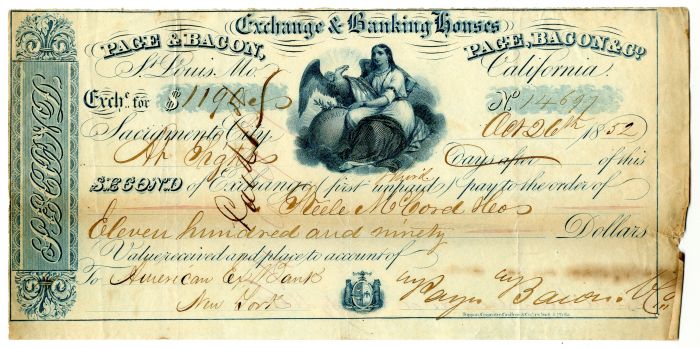 Exchange & Banking Houses
PAGE & BACON,
PAGE, BACON & Co.
St. Louis, Mo.
California.
Exche. for $ 1190
No 14697
Sacramento City
Oct 26th 1852
At Sight Days after of this
SECOND of Exchange (first unpaid) pay to the order of
Steele McCord
Eleven hundred and ninety Dollars
Value received and place to account of
To American Ex Bank
New York
Page Bacon & Co
SECOND
Paid